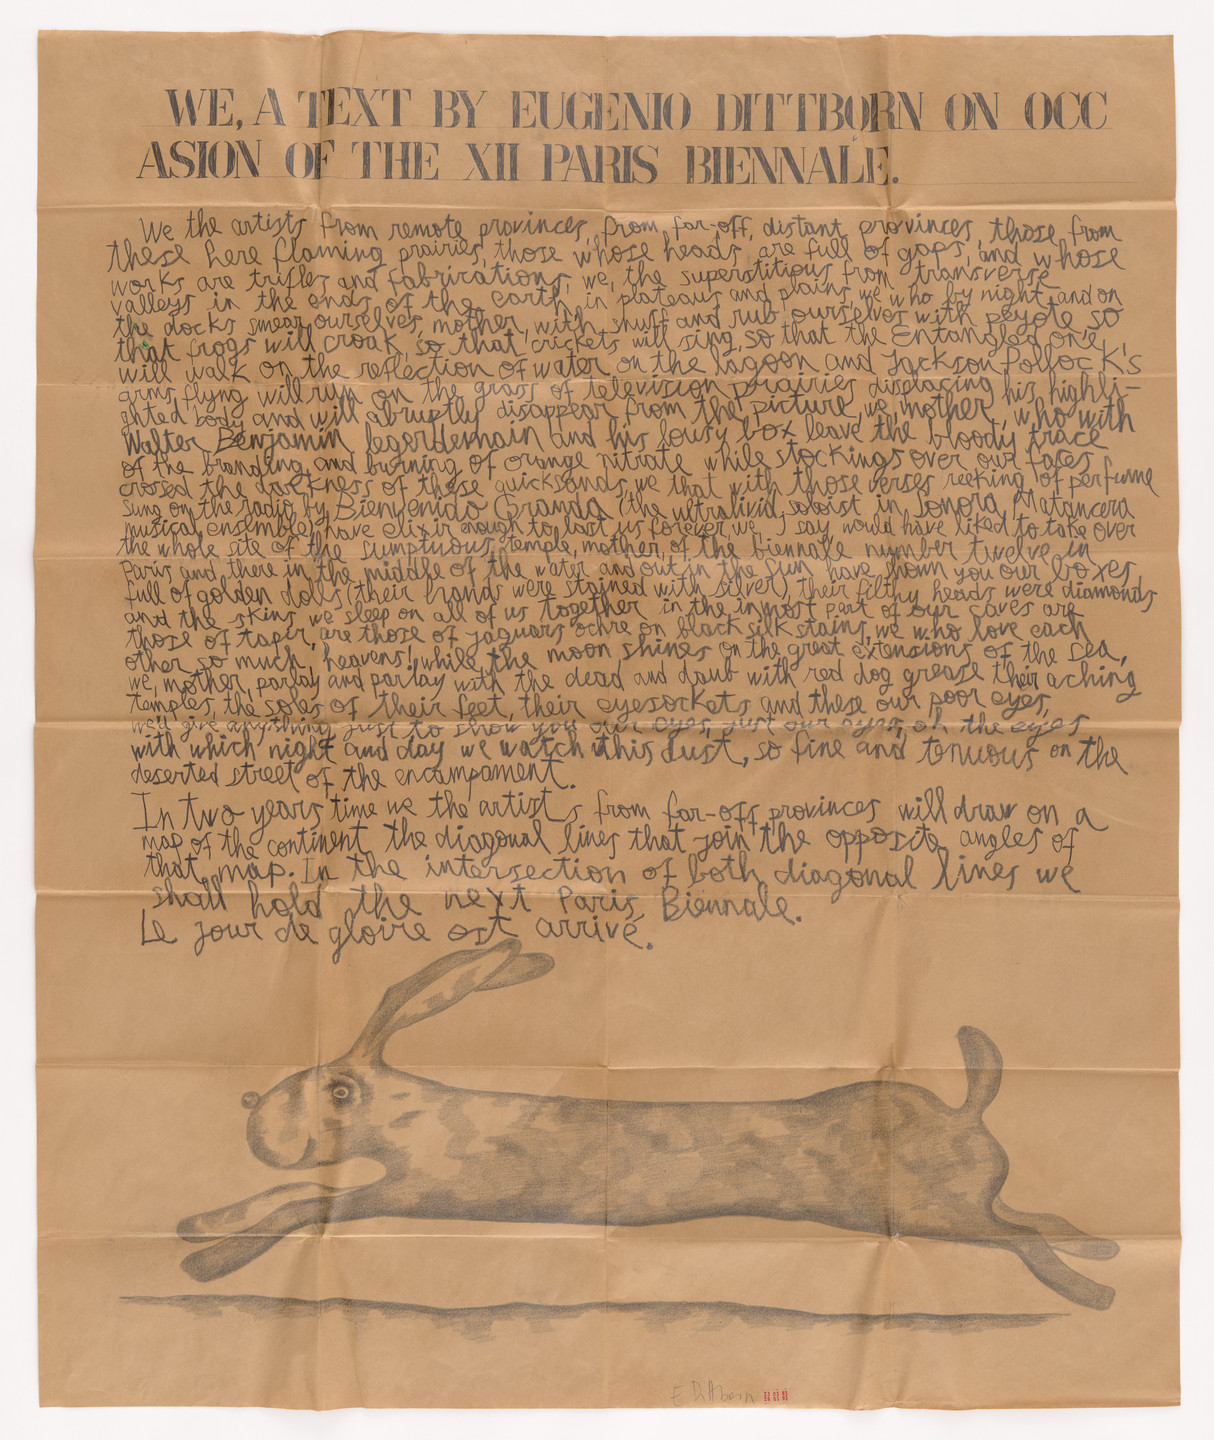 WE, A TEXT BY EUGENIO DITTBORN ON OCC
ASION OF THE XII PARIS BIENNALE.
We the artists from remote provinces, from far-off, distant provinces, those from
these here flaming prairies, those whose heads are full of gaps, and whose
works are trifles and fabrications, we, the superstitious from transverse
valleys in the ends of the earth, in plateaus and plains, we who by night and on
the docks smear ourselves, mother, with snuff and rub ourselves with peyote so
that frogs will croak, so that crickets will sing, so that the Entangled one
will walk on the reflection of water on the lagoon and Jackson Pollock's
arms flyng will run on the grass of television prairies displacing his highli-
ghted body and will abruptly disappear from the picture, we, mother, who with
Walter Benjamin legerdemain and his lousy box leave the bloody trace
of the branding and burning of orange nitrate while stockings over our faces
crossed the darkness of these quicksands, we that with those verses reeking of perfume
sung on the radio by Bienvenido Granda (the ultralivid soloist in Sonora Matancera
musical ensemble) have elixir enough to last us forever, we, I say would have liked to take over
the whole site of the sumptuous temple, mother, of the biennale number twelve in
Paris and there in the middle of the water and out in the sun have shown you our boxes
full of golden dolls (their hands were stained with silver), their filthy heads were diamonds
and the skins we sleep on all of us together in the inmost part of our caves are
those of tapir, are those of jaguars ochre on black silk stains, we who love each
other so much, heavens! while the moon shines on the great extensions of the sea,
we, mother, parlay and parlay with the dead and daub with red dog grease their aching
temples, the soles of their feet, their eyesockets and these our poor eyes,
we'll give anything just to show you our eyes, just our eyes, oh the eyes
with which night and day we watch this dust, so fine and tenuous on the
deserted street of the encampament.
In two years time we the artists from far-off provinces will draw on a
map of the continent the diagonal lines that join the opposite angles of
that map. In the intersection of both diagonal lines we
shall hold the next Paris Biennale.
Le jour de gloire est arrivé.
E Dittborn